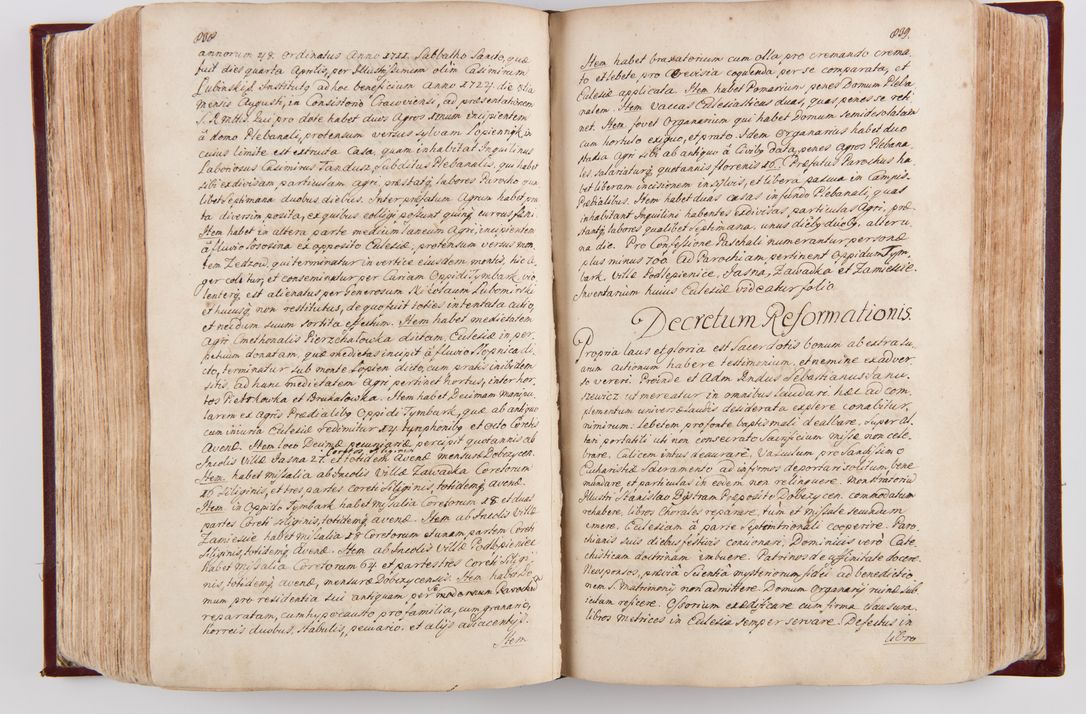 838
annorum 48. Ordinatus Anno 1711. Sabbatho Sancto, quæ
fuit dies quarta Aprilis, per Illustrissimum olim Casimirum
Lubinski, Institutq ad hoc beneficium Anno 1724. die 8va
mensis Augusti, in Consistorio Cracoviensi, ad præsentationem
S. R. Mttis. Qui pro dote habet duos Agros unum incipientem
à domo Plebanali, protensum versus sylvam Łopiennik in
cuius limite est extructa Casa, quam inhabitat Inquilinus
Laboriosus Casimirus Tandusz, subditus Plebanalis, qui habet
sibi exdivisam, particulam agri, præstatq labores Parocho qua
libet Septimana duobus diebus. Inter præfatum Agrum habet pra
ta diversim posita, ex quibus colligi possunt quinq currus fæni.
Item habet in altera parte medium laneum Agri, incipientem
à fluvio Sososina ex opposito Eclesiæ, protensum versus mon,
tem Zedzow, qui terminatur in vertice eiusdem montis, hic a,
ger colitur, et consemiuatur per Cariam Oppidi Tymbark vio,
lenterq, est alienatus per Generosum Nicolaum Lubomirski
et hucusq non restitutus, de quo fuit toties intentata actio,
et necdum suum sortita effectum. Item habet medietatem
agri Cmethonalis Pierzchałowka dictam, Eclesiæ in per,
petuum donatam, quæ medietas incipit à fluvio Słopnica di,
cto, terminatur sub monte Łopien dicto, cum pratis inibidem
sitis, ad hanc medietatem Agri pertinet hortus, inter hor,
tos Piotrkowka et Brukałowka. Item habet Decimam Manipu,
larem ex Agris Prædialibq Oppidi Tymbark, quæ ab antiquo
cum iniuria Eclesiæ redimitur 14 tynphonibq et octo Coretis
Avenæ. Item loco Decimæ pecuniariæ percipit quotannis ab
Incolis Villæ Jasna 27. Coretos siliginis et totidem Avenæ mensuræ Dobczycen.
Item habet Missalia ab Incolis Villæ Zawadka Coretorum
18 Siliginis, et tres partes coreti Siliginis, totidemq avenæ.
Item in Oppido Tymbark habet missalia Coretorum 18 et duas
partes Coreti siliginis, totidemq avenæ. Item ab Incolis Villæ
Zamiessie habet Missalia 18 Coretorum et unam partem Coreti
Siliginis, totidemq Avenæ. Item ab Incolis Villæ Podłopieniec
habet Missalia Coretorum 64 et partes tres coreti Siligi,
nis, totidemq avenæ, mensuræ Dobczycensis. Item habet Do,
mum pro residentia sui antiquam per modernum Parochum
reparatam, cum hypocausto, pro familia, cum granario,
horreis duobus, stabulis, pecuario, et alijs adiacentijs.
Item
839.
Item habet braxatorium cum olla pro cremando crema,
to et lebete, pro Cerevisia coquenda per se comparata, et
Eclesiæ applicata. Item habet Pomarium, penes Domum Pleba
nalem. Item vaccas Eclesiasticas duas, quas penes se reti,
net. Item fovet Organarium qui habet Domum semidesolatam
cum hortulo exiguo, et prato. Idem Organarius habet duo
stadia Agri sibi ab antiquo à Civibq data, penes agros Plebana,
les, salariaturq quotannis florenis 10. Præfatus Parochus ha,
bet liberam incisionem in sylvis, et libera pascua in Campis
Prædialibus. Item habet duas casas in fundo Plebanali, quas
inhabitant Inquilini habentes exdivisas, particulas Agri, præ,
stantq labores qualibet septimana, unus diebq duobq, alter u,
na die. Pro Confessione Paschali numerantur personæ
plus minus 700. Ad Parochiam, pertinent Oppidum Tym,
bark, Villæ Podlepienice, Jasna, Zawadka et Zamiessie.
Inventarium huius Eclesiæ videatur folio
Decretum Reformationis.
Propria laus et gloria est Sacerdotis bonum ab extra su,
arum actionum habere testimonium, et nemine ex adver
so vereri. Proinde et Adm Rndus Sebastianus Janu,
szewicz ut mereatur in omnibus laudari, hæc ad com,
plementum universæ laudis desiderata explere conabitur,
nimirum. Lebetem pro fonte baptismali dealbare. Super Al,
tari portatili uti non consecrato Sacrificium Missæ non cele,
brare. Calicem intus deaurare. Vasculum pro Sanctissimo
Eucharistiæ Sacramento ad infirmos deportari solitum, bene
mundare et particulas in eodem non relinquere. Monstratoriū
Illustri Stanislao Bystram Præposito Dobczycen. commodatum
rehabere, libros Chorales reparare, tum et Missale secundum
emere. Eclesiam à parte Septentrionali cooperire. Paro,
chianis suis diebus festivis concionari, Dominicis vero Cate,
chisticam doctrinam imbuere. Patrinos de affinitate docere.
Neosponsos, prævia Scientia mysteriorum fidei ad benedictio,
nem S. Matrimonij non admittere. Domum Organarij ruinæ sub,
iectam reficere. Ossorium exædificare cum firma clausura.
libros Metrices in Eclesia semper servare. Defectus in
libro